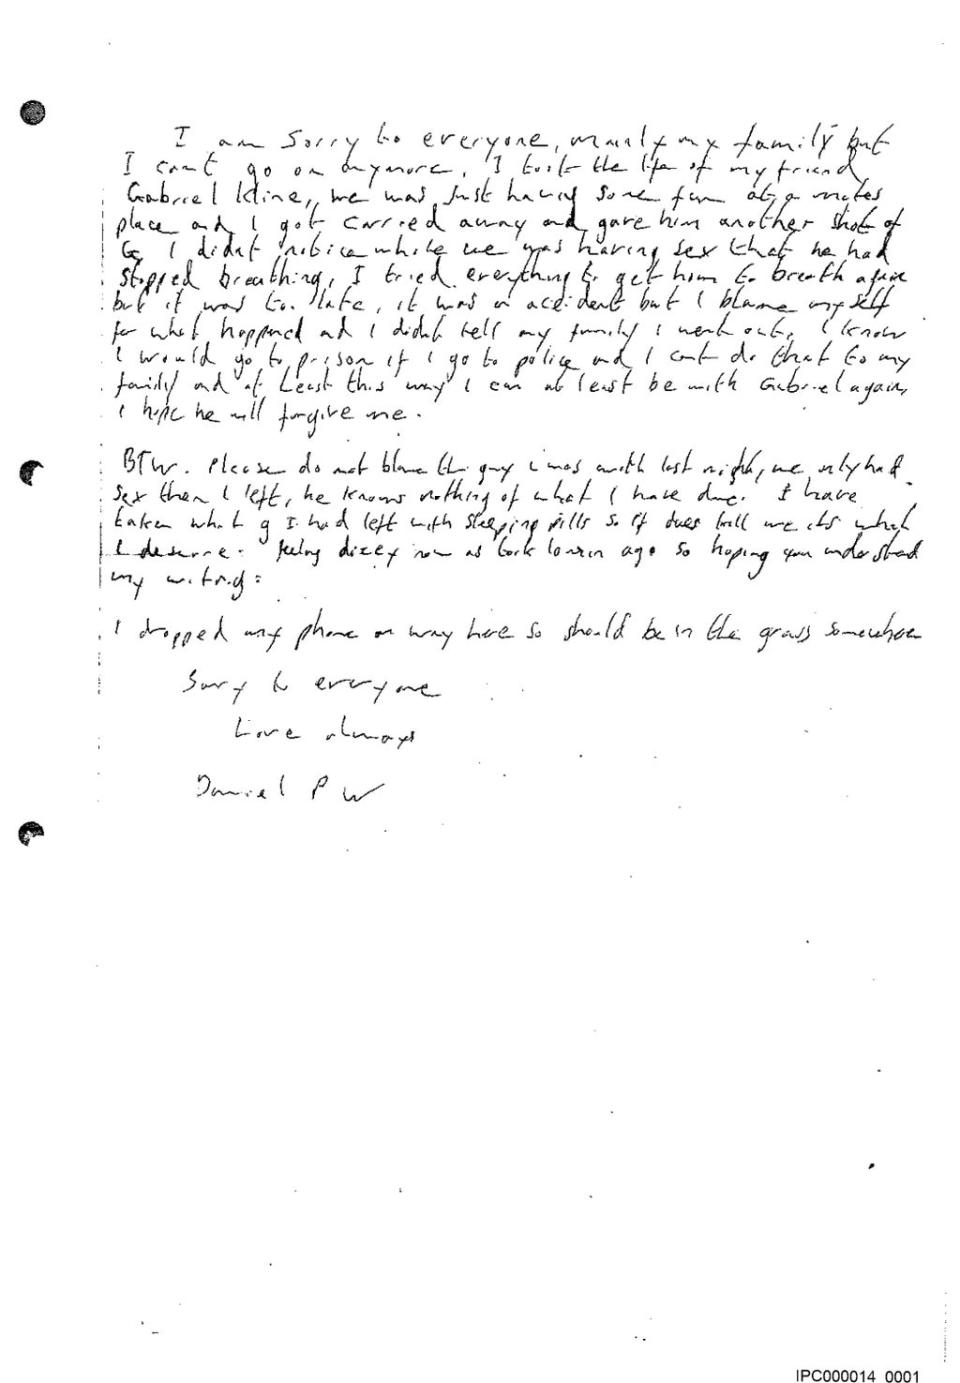 I am Sorry to everyone, mainly my family but
I cant go on anymore, I took the life of my friend
Gabriel Kline, we was just having some fun at a mates
place and I got carried away and gave him another shot of
G, I didnt notice while we was having sex that he had
Stopped breathing, I tried everything to get him to breath again
but it was to late, it was a accident but I blame myself
for what happened and I didnt tell my family I went out, I know
I would go to prison if I go to police and I cant do that to my
family and at Least this way I can at least be with Gabriel again,
I hope he will forgive me.
BTW. Please do not blame the guy I was with last night, we only had
sex then I left, he knows nothing of what I have done. I have
taken what g I had left with sleeping pills so if it does kill me its what
I deserve. feeling dizzy now as took 10 min ago so hoping you understand
my writing.
I dropped my phone on way here so should be in the grass somewhere
Sorry to everyone
Love always
Daniel P W
IPC000014 0001